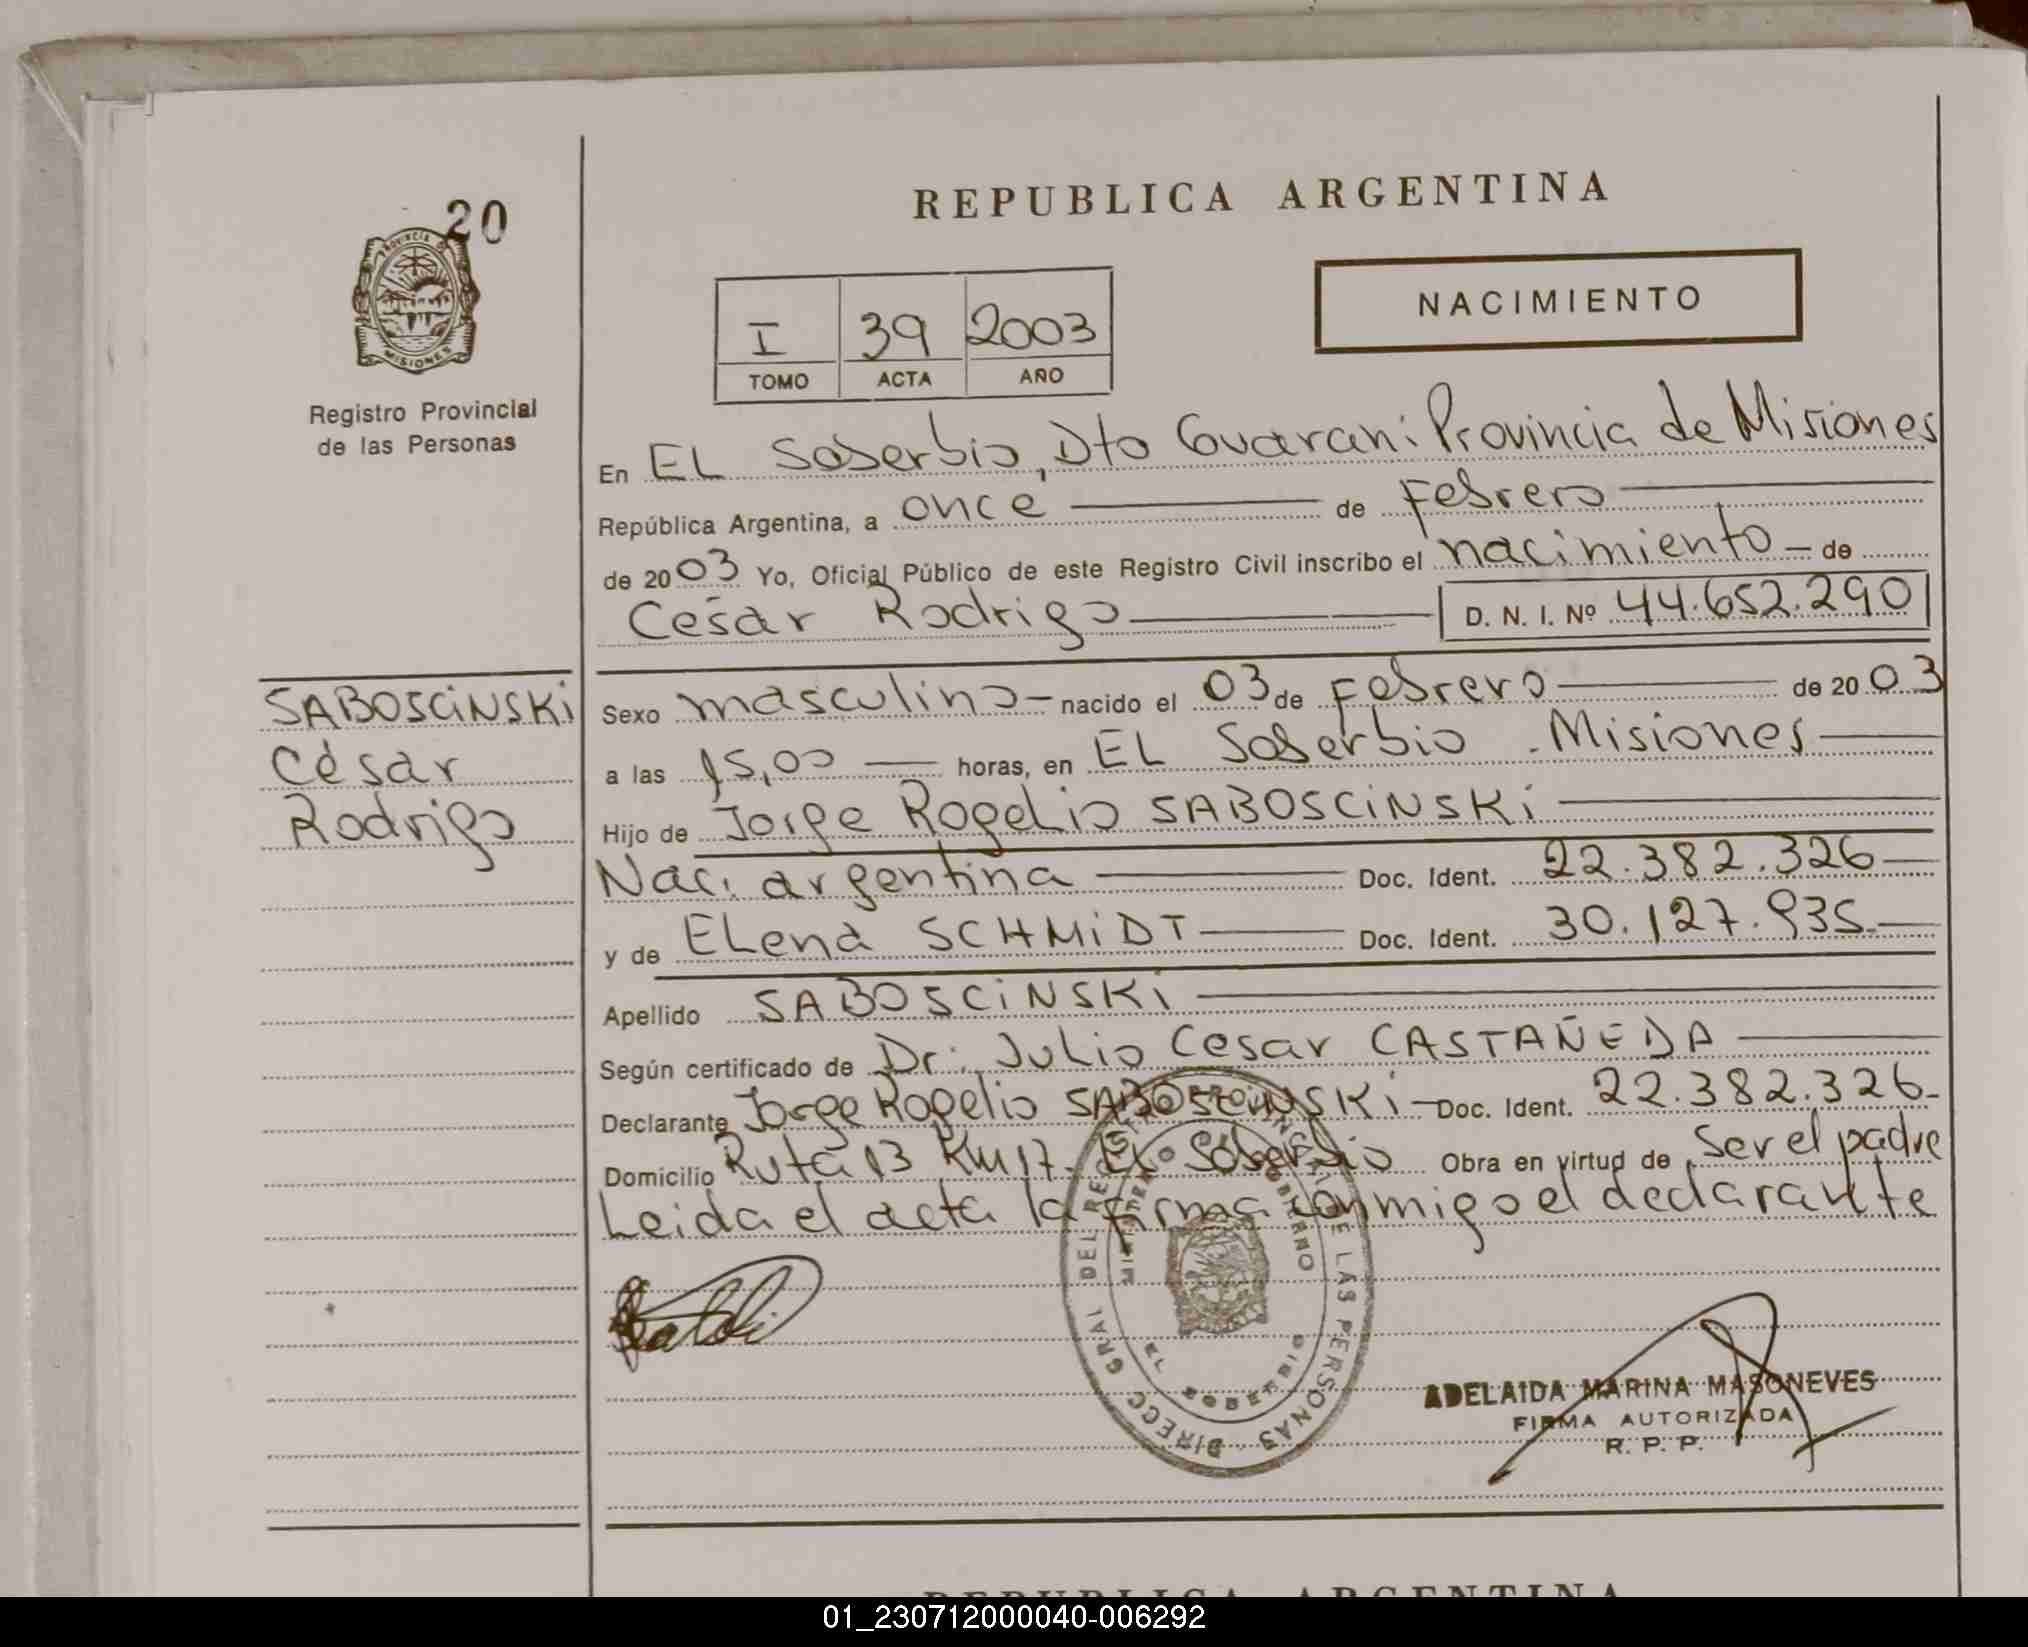 20
PROVINCIA DE
MISIONES
Registro Provincial
de las Personas
REPUBLICA ARGENTINA
NACIMIENTO
I 39 2003
TOMO ACTA AÑO
En EL Soberbio, Dto Guarani Provincia de Misiones
República Argentina, a once de Febrero
de 2003 Yo, Oficial Público de este Registro Civil inscribo el nacimiento de
César Rodrigo D. N. I. Nº 44.652.290
SABOSCiNSKi
César
Rodrigo
Sexo masculino nacido el 03 de Febrero de 2003
a las 15,00 horas, en EL Soberbio - Misiones
Hijo de Jorge Rogelio SABOSCiNSKi
Nac. argentina Doc. Ident. 22.382.326
y de ELena SCHMiDT Doc. Ident. 30.127.935
Apellido SABOSCiNSKi
Según certificado de Dr. Julio Cesar CASTAÑEDA
Declarante Jorge Rogelio SABOSCiNSKi Doc. Ident. 22.382.326
Domicilio Ruta 13 Km 17 - El Soberbio Obra en virtud de Ser el padre
Leida el acta la firma conmigo el declarante
DIRECC GRAL DEL REGISTRO PROVINCIAL DE LAS PERSONAS
EL SOBERBIO
ADELAIDA MARINA MASONEVES
FIRMA AUTORIZADA
R. P. P.
REPUBLICA ARGENTINA
01_230712000040-006292